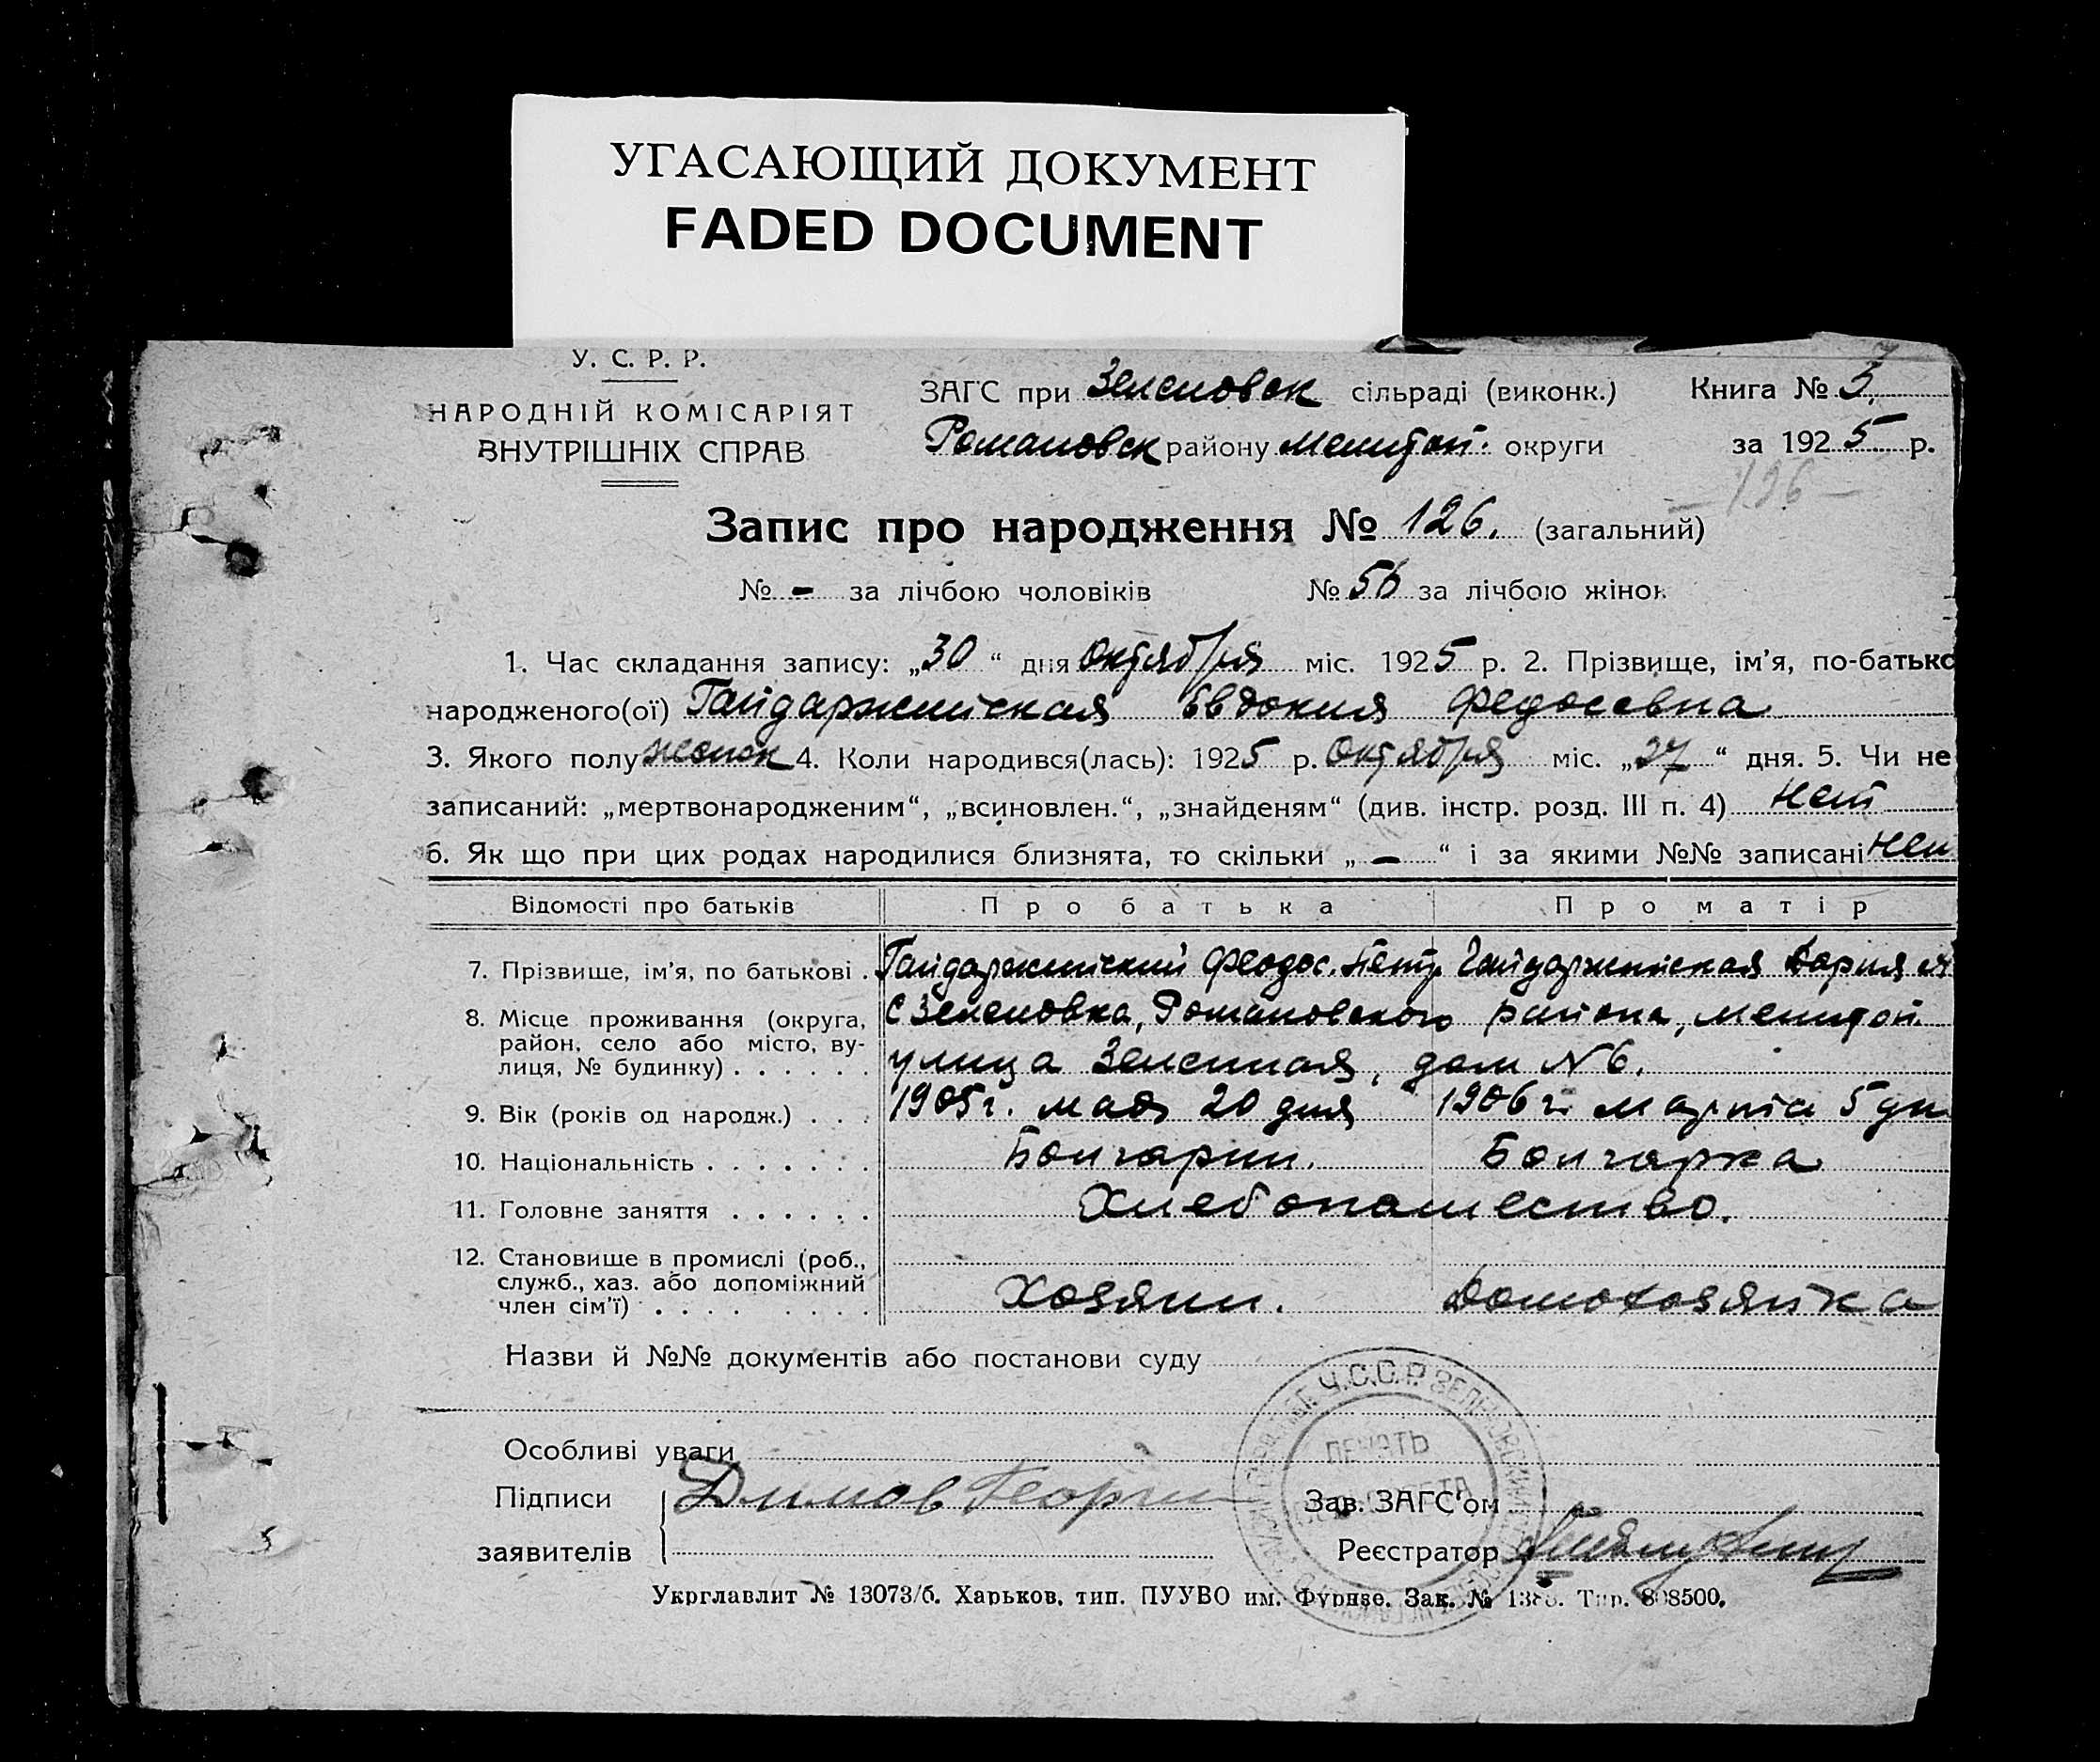 УГАСАЮЩИЙ ДОКУМЕНТ
FADED DOCUMENT
У. С. Р. Р.
НАРОДНІЙ КОМІСАРІЯТ
ВНУТРІШНІХ СПРАВ
ЗАГС при Зеленовск сільраді (виконк.) Книга № 3.
Романовск району Мелитоп. округи за 1925 р.
— 126 —
Запис про народження № 126. (загальний)
№ - за лічбою чоловіків № 56 за лічбою жінок
1. Час складання запису: „30“ дня октября міс. 1925 р. 2. Прізвище, ім’я, по-батько
народженого(ої) Гайдаржийская Евдокия Федосевна
3. Якого полу женск 4. Коли народився(лась): 1925 р. Октября міс. „27“ дня. 5. Чи не
записаний: „мертвонародженим“, „всиновлен.“, „знайденям“ (див. інстр. розд. III п. 4) нет
6. Як що при цих родах народилися близнята, то скільки „ — “ і за якими №№ записані нет
Відомості про батьків Про батька Про матір
7. Прізвище, ім’я, по батькові . Гайдаржийский Феодос. Петр Гайдаржийская Дария
8. Місце проживання (округа, район, село або місто, вулиця, № будинку) . . . . . . С Зеленовка, Романовского района, Мелитоп.
улица Зеленная, дом № 6.
9. Вік (років од народж.) . . . 1905 г. мая 20 дня 1906 г. Марта 5 дн
10. Національність . . . . . . . Болгарин. Болгарка
11. Головне заняття . . . . . . Хлебопашество.
12. Становище в промислі (роб., служб., хаз. або допоміжний член сім’ї) . . . . . . . . Хозяин. Домохозяйка
Назви й №№ документів або постанови суду
Особливі уваги
Підписи заявителів Димов Георги
Зав. ЗАГС’ом
Реєстратор
У.С.С.Р.
ПЕЧАТЬ
Укрглавлит № 13073/б. Харьков, тип. ПУУВО им. Фрунзе. Зак. № Тир. 808500.